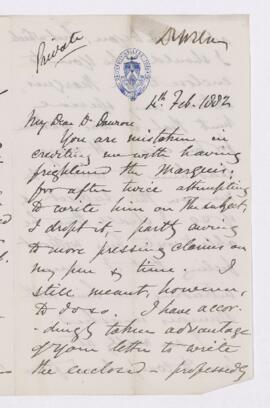 Private
4th Feb. 1882
My Dear Dr Dawson
You are mistaken in
crediting me with having
frightened the Marquis,
for after twice attempting
to write him on the subject,
I dropt it, – partly owing
to more pressing claims on
my pen & time. I
still meant, however,
to do so. I have accor-
dingly taken advantage
of your letter to write
the enclosed – professedly